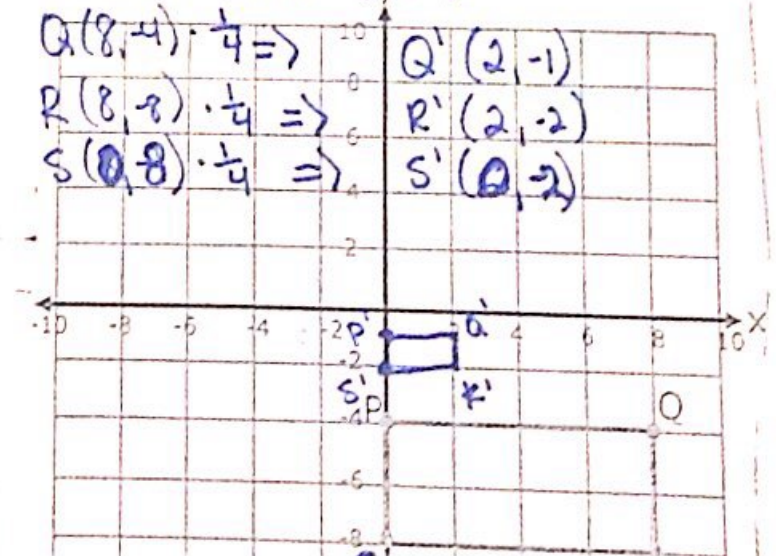 Q(8,-4) · 1/4 => Q' (2,-1)
R(8,-8) · 1/4 => R' (2,-2)
S(0,-8) · 1/4 => S' (0,-2)
10
8
6
4
2
-10 -8 -6 -4 -2 2 4 6 8 10 X
P' Q'
-2
S' R'
-4 P Q
-6
-8